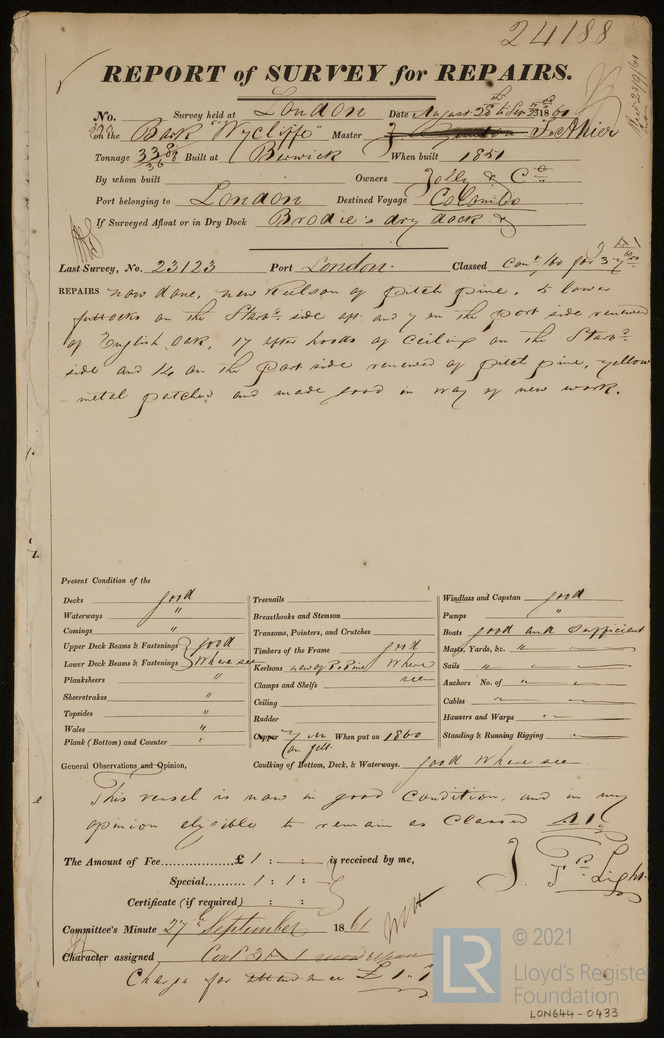 24188
REPORT of SURVEY for REPAIRS.
No. Survey held at London Date August 28th to Sep 23rd 1861
on the Bark "Wycliffe" Master J. Ahier
Tonnage 338 Built at Berwick When built 1851
By whom built Owners Jolly & Co
Port belonging to London Destined Voyage Colombo
If Surveyed Afloat or in Dry Dock Brodie's dry dock &
Last Survey, No. 23123 Port London. Classed Cont. /60 for 3 yrs
REPAIRS now done, new Keelson of pitch pine. 5 lower
futtocks on the Starbd side aft and 7 on the port side renewed
of English Oak, 17 after hoods of Ceiling on the Starbd
side and 14 on the port side renewed of pitch pine, yellow
metal patched and made good in way of new work.
Present Condition of the
Decks good
Waterways "
Comings "
Upper Deck Beams & Fastenings } good
Lower Deck Beams & Fastenings } Where seen
Planksheers "
Sheerstrakes "
Topsides "
Wales "
Plank (Bottom) and Counter "
Treenails
Breasthooks and Stemson
Transoms, Pointers, and Crutches
Timbers of the Frame good
Keelsons new of P. Pine Where
Clamps and Shelfs seen
Ceiling
Rudder
Copper Y M When put on 1860
on felt
Windlass and Capstan good
Pumps "
Boats good and sufficient
Masts, Yards, &c. " "
Sails " "
Anchors No. of " "
Cables " "
Hawsers and Warps " "
Standing & Running Rigging " "
General Observations and Opinion, Caulking of Bottom, Deck, & Waterways. good Where seen
This vessel is now in good condition, and in my
opinion eligible to remain as Classed A1
The Amount of Fee............£ 1 : - : - is received by me,
Special......... 1 : 1 : -
Certificate (if required) : - :
J. F. Light
Committee's Minute 27th September 1861
Character assigned Cont 3 A 1
Charge for attendance £1.1
© 2021
LR
Lloyd's Register
Foundation
LON644-0433